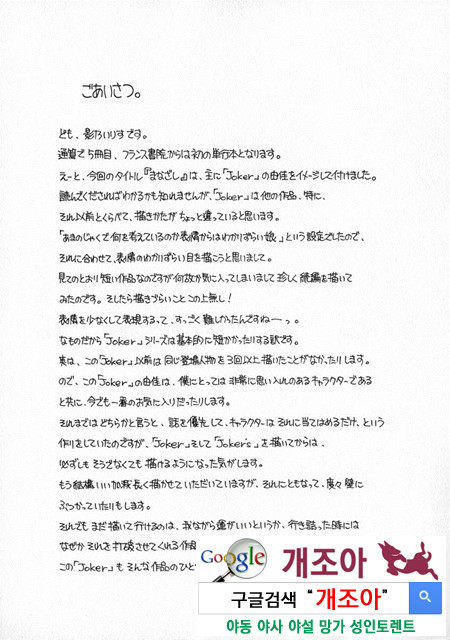 ごあいさつ。
ども、影乃いりすです。
通算で5冊目、フランス書院からは初の単行本となります。
えーと、今回のタイトル『まなざし』は、主に「Joker」の由佳をイメージして付けました。
読んでくださればわかるかも知れませんが、「Joker」は他の作品、特に、
それ以前とくらべて、描きかたがちょっと違っていると思います。
「あまのじゃくで何を考えているのか表情からはわかりずらい娘」という設定でしたので、
それに合わせて、表情のわかりずらい目を描こうと思いまして。
見てのとおり短い作品なのですが何故か気に入ってしまいまして珍しく続編を描いて
みたのです。そしたら描きづらいことこの上無し!
表情を少なくして表現するって、すっごく難しかったんですねーっ。
なものだから「Joker」シリーズは基本的に短かかったりする訳です。
実は、この「Joker」以前は同じ登場人物を3回以上描いたことがなかったりします。
ので、この「Joker」の由佳は、僕にとっては非常に思い入れのあるキャラクターである
と共に、今でも一番のお気に入りだったりします。
それまではどちらかと言うと、話を優先して、キャラクターはそれに当てはめるだけ、という
作りをしていたのですが、「Joker」そして「Joker's」を描いてからは、
必ずしもそうでなくても描けるようになった気がします。
もう結構いい加減長く描かせていただいていますが、それにともなって、度々壁に
ぶつかっていたりもします。
それでもまだ描いて行けるのは、我ながら運がいいというか、行き詰った時には
なぜかそれを打破させてくれる作品
この「Joker」もそんな作品のひと
Google 개조아
구글검색 “개조아”
야동 야사 야설 망가 성인토렌트